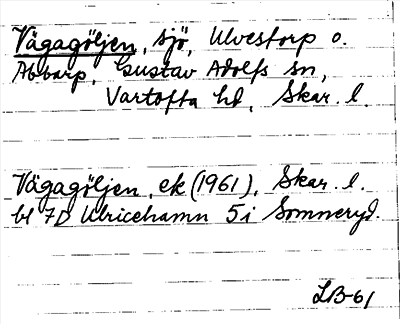 Vägagöljen, sjö, Ulvestorp o.
Abbarp, Gustav Adolfs sn,
Vartofta hd, Skar. l.
Vägagöljen, ek (1961), Skar. l.
bl 7D Ulricehamn 5i Sommeryd.
LB-61